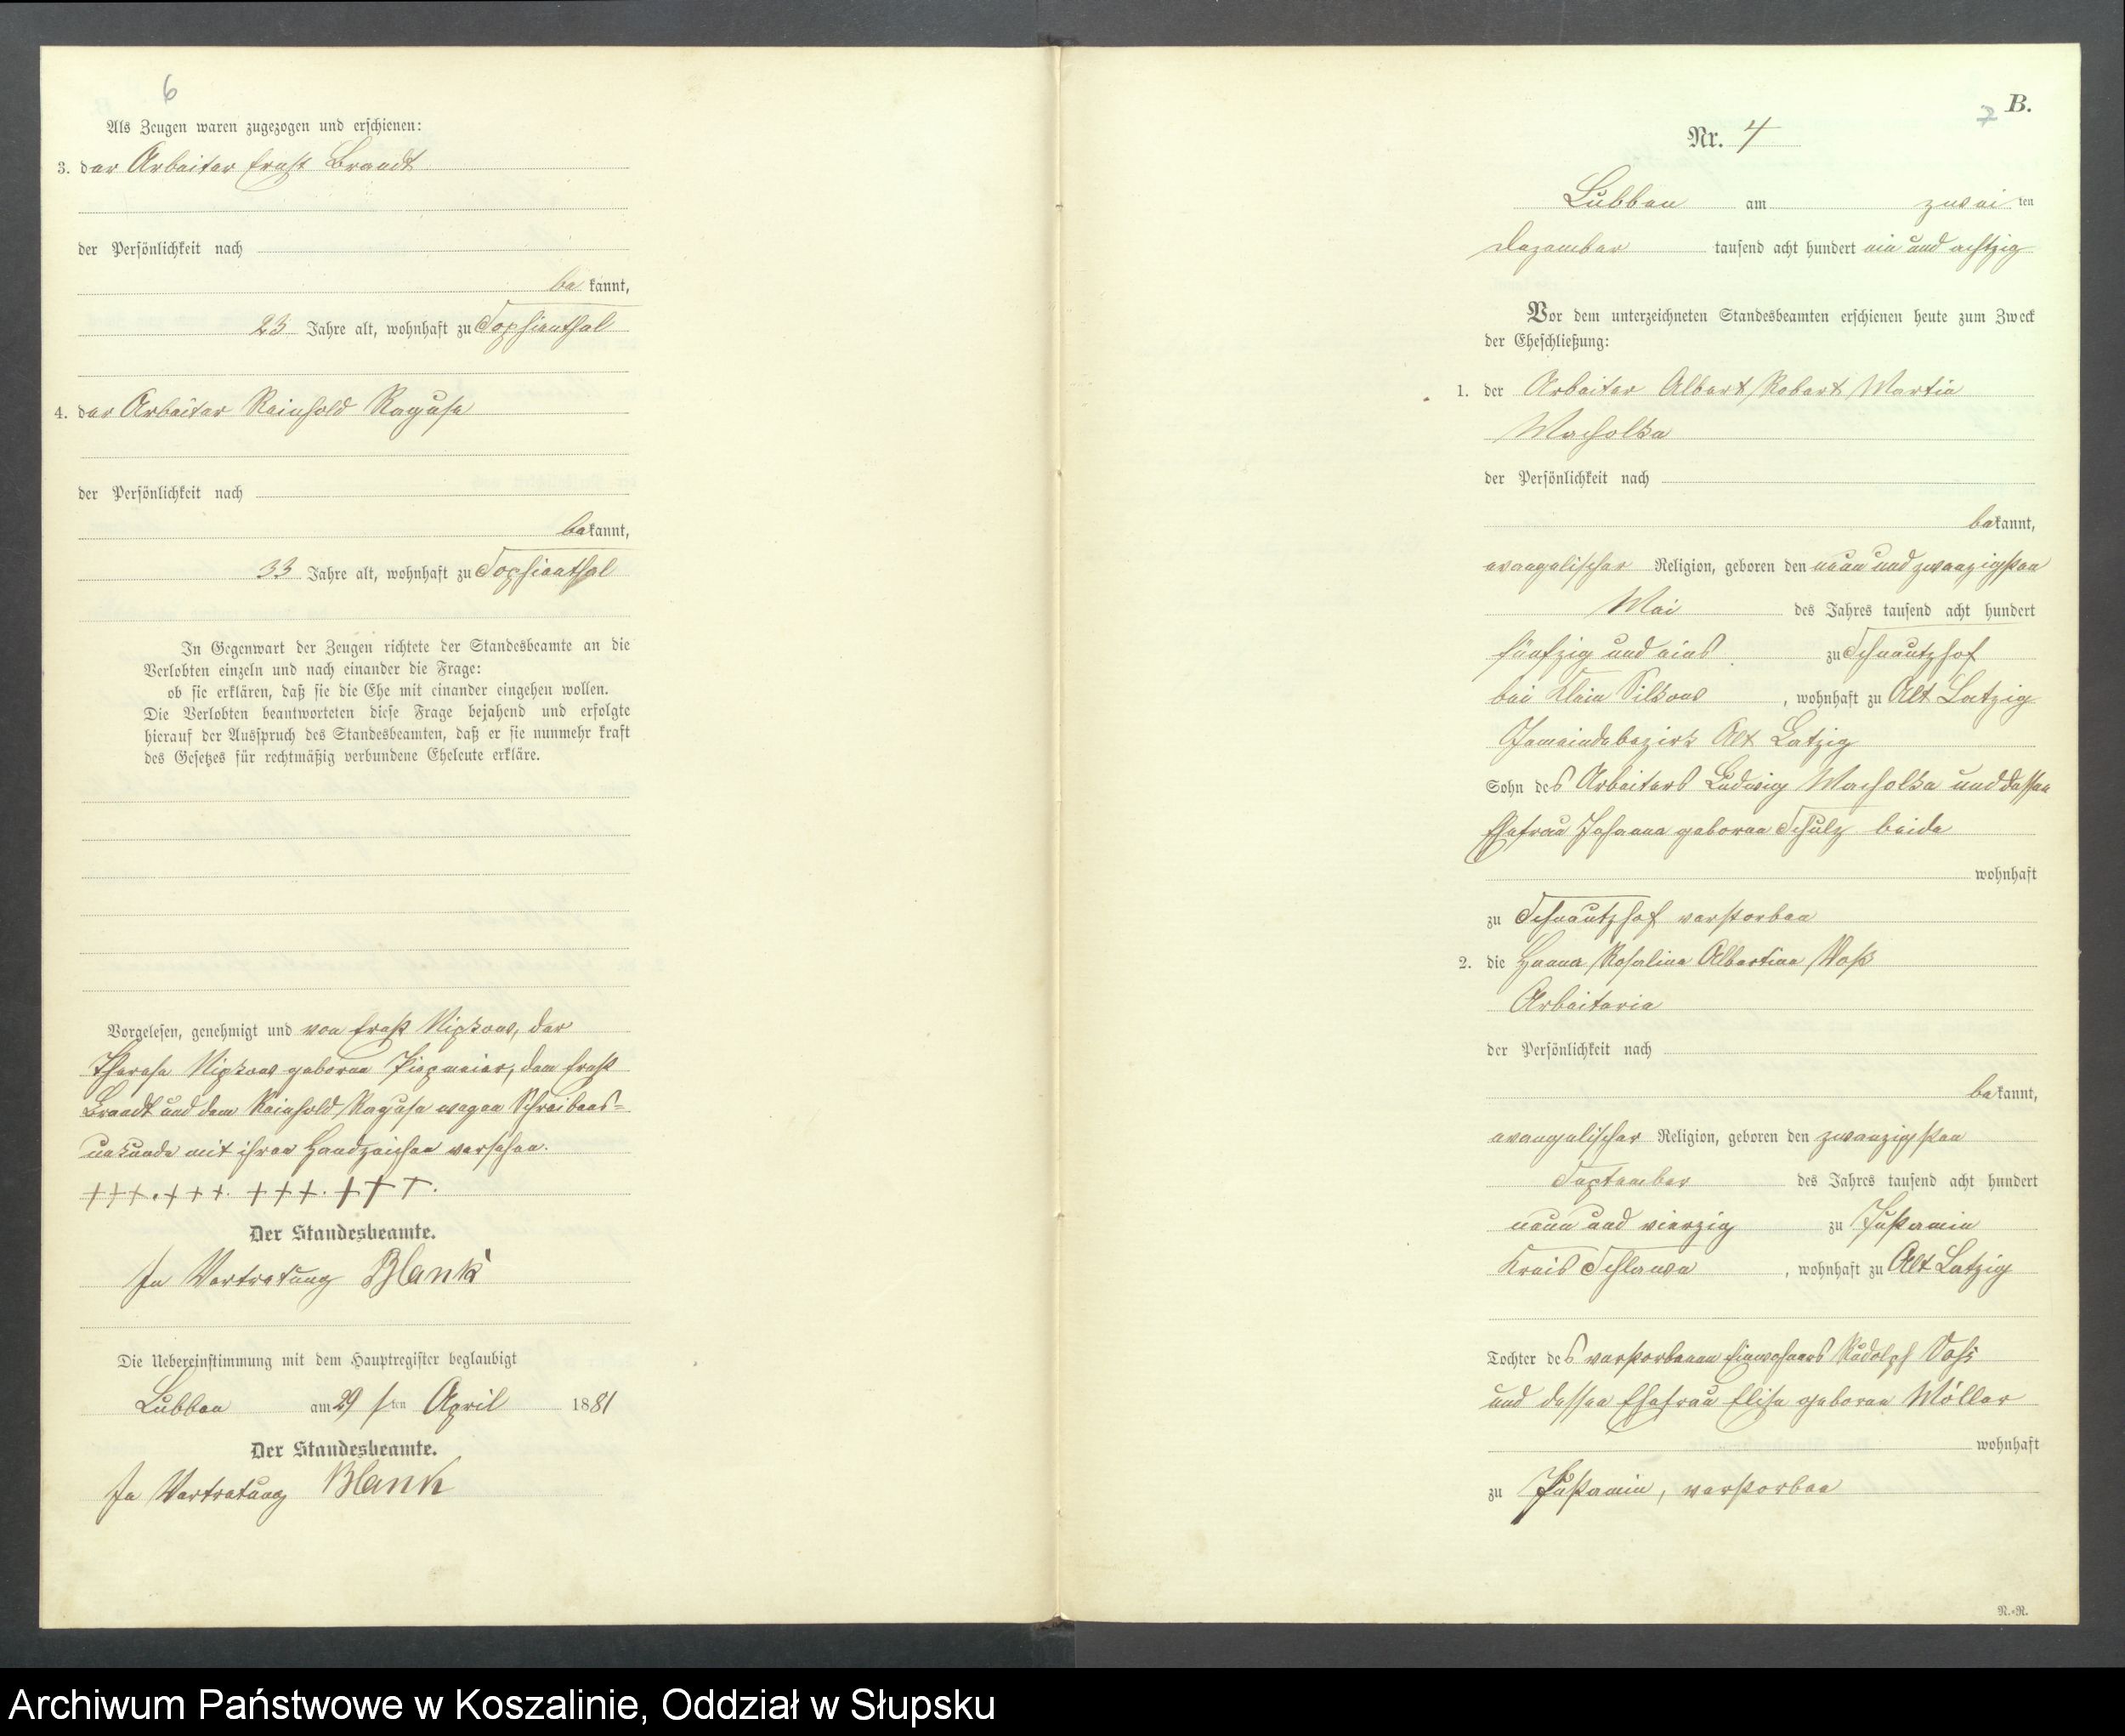 6
Als Zeugen waren zugezogen und erschienen:
3. der Arbeiter Ernst Brandt
der Persönlichkeit nach
be kannt,
23 Jahre alt, wohnhaft zu Sophienthal
4. der Arbeiter Reinhold Raguse
der Persönlichkeit nach
bekannt,
33 Jahre alt, wohnhaft zu Sophienthal
In Gegenwart der Zeugen richtete der Standesbeamte an die
Verlobten einzeln und nach einander die Frage:
ob sie erklären, daß sie die Ehe mit einander eingehen wollen.
Die Verlobten beantworteten diese Frage bejahend und erfolgte
hierauf der Ausspruch des Standesbeamten, daß er sie nunmehr kraft
des Gesetzes für rechtmäßig verbundene Eheleute erkläre.
Vorgelesen, genehmigt und von Ernst Nipkow, der
Therese Nipkow geborne Piepmeier, dem Ernst
Brandt und dem Reinhold Raguse wegen Schreibens-
unkunde mit ihren Handzeichen versehen.
+++. +++. +++. +++.
Der Standesbeamte.
In Vertretung Blank
Die Uebereinstimmung mit dem Hauptregister beglaubigt
Lubben am 29 sten April 1881
Der Standesbeamte.
In Vertretung Blank
B.
7
Nr. 4
Lubben am zwei ten
Dezember tausend acht hundert ein und achtzig
Vor dem unterzeichneten Standesbeamten erschienen heute zum Zweck
der Eheschließung:
1. der Arbeiter Albert Robert Martin
Macholke
der Persönlichkeit nach
bekannt,
evangelischer Religion, geboren den neun und zwanzigsten
Mai des Jahres tausend acht hundert
fünfzig und eins zu Schnautzhof
bei Klein Silkow, wohnhaft zu Alt Latzig
Gemeindebezirk Alt Latzig
Sohn des Arbeiters Ludwig Macholke und dessen
Ehefrau Johanna geborne Schulz beide
wohnhaft
zu Schnautzhof verstorben
2. die Rosaline Albertine Voß
Arbeiterin
der Persönlichkeit nach
bekannt,
evangelischer Religion, geboren den zwanzigsten
September des Jahres tausend acht hundert
neun und vierzig zu
Kreis Schlawe, wohnhaft zu Alt Latzig
Tochter des verstorbenen Einwohners Rudolph Voß
und dessen Ehefrau Elise geborne Möller
wohnhaft
zu , verstorben
R.-R.
Archiwum Państwowe w Koszalinie, Oddział w Słupsku